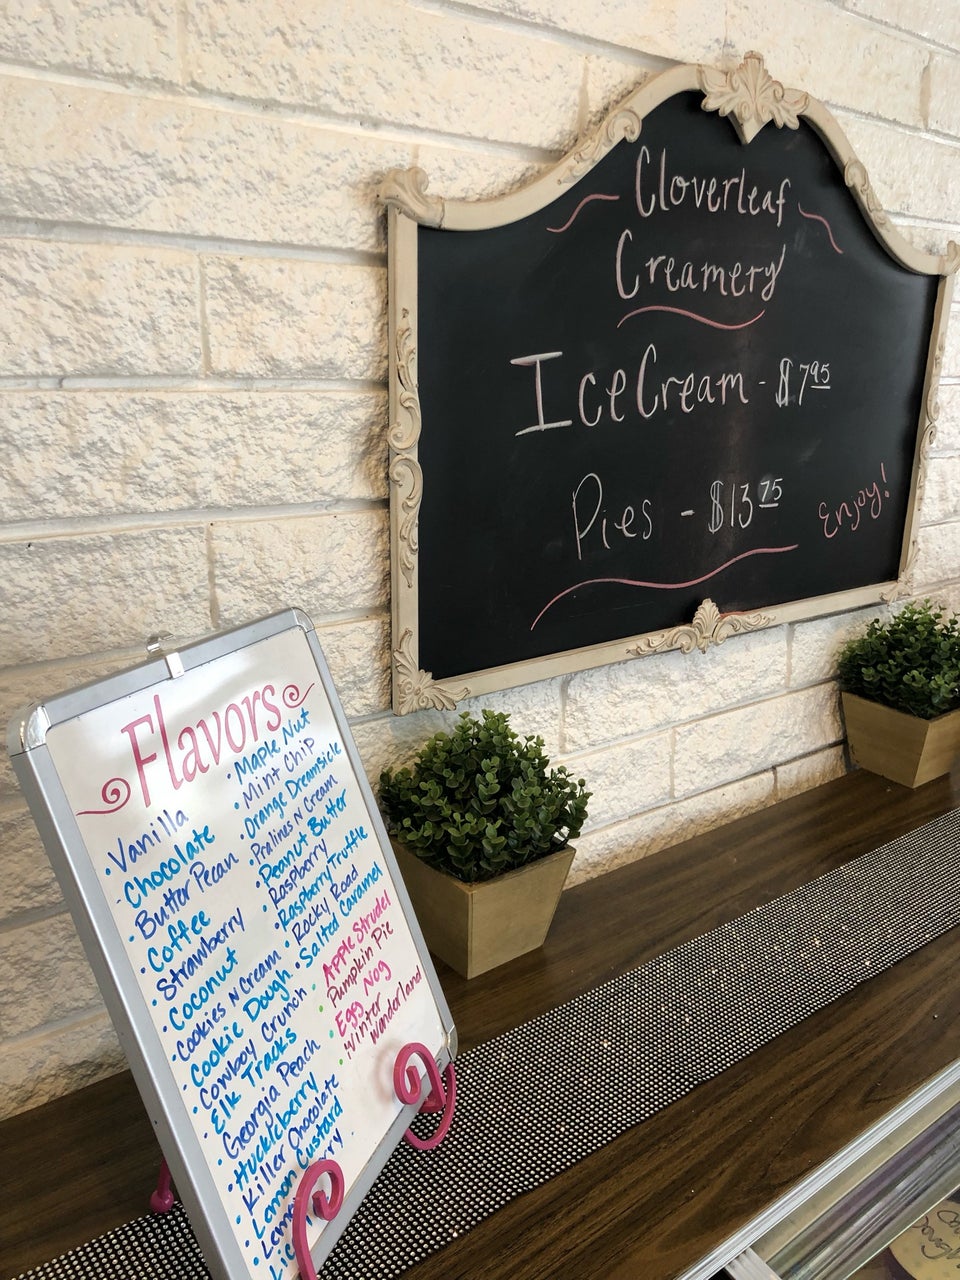 Cloverleaf
Creamery
Ice Cream - $7 95
Pies - $13 75
Enjoy!
Flavors
• Vanilla
• Chocolate
• Butter Pecan
• Coffee
• Strawberry
• Coconut
• Cookies N Cream
• Cookie Dough
• Cowboy Crunch
• Elk Tracks
• Georgia Peach
• Huckleberry
• Killer Chocolate
• Lemon Custard
• Maple Nut
• Mint Chip
• Orange Dreamsicle
• Pralines N Cream
• Peanut Butter
• Raspberry
• Raspberry Truffle
• Rocky Road
• Salted Caramel
• Apple Strudel
• Pumpkin Pie
• Egg Nog
• Winter
Wonderland